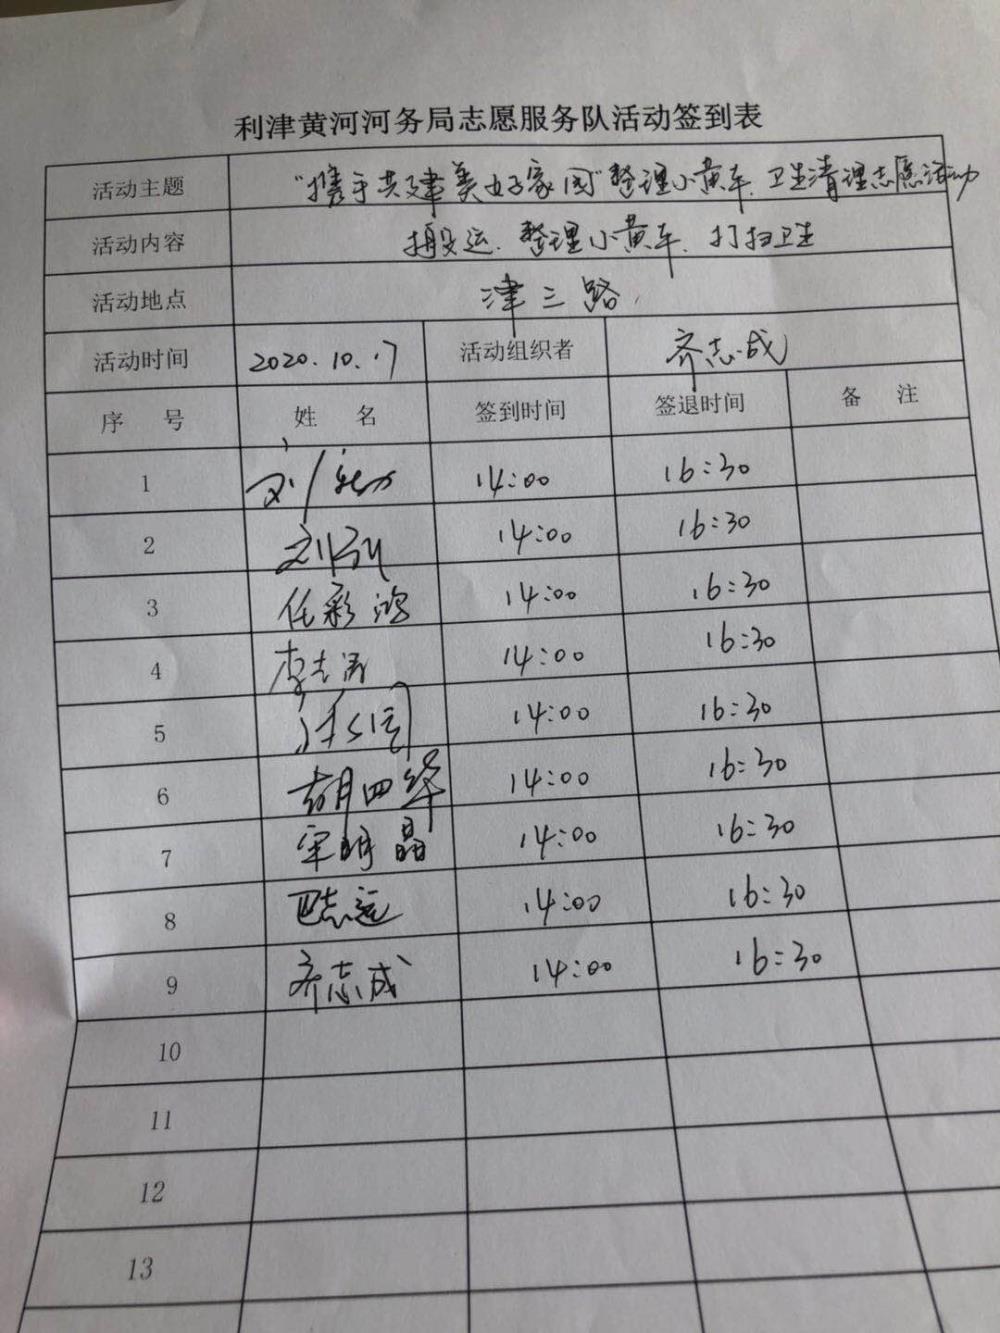 利津黄河河务局志愿服务队活动签到表
活动主题 "携手共建美好家园"整理小黄车、卫生清理志愿活动
活动内容 搬运、整理小黄车、打扫卫生
活动地点 津三路
活动时间 2020.10.17 活动组织者 齐志成
序 号 姓 名 签到时间 签退时间 备 注
1 刘 14:00 16:30
2 刘 14:00 16:30
3 任彩鸿 14:00 16:30
4 李志涛 14:00 16:30
5 14:00 16:30
6 胡四华 14:00 16:30
7 宋明晶 14:00 16:30
8 巴志远 14:00 16:30
9 齐志成 14:00 16:30
10
11
12
13